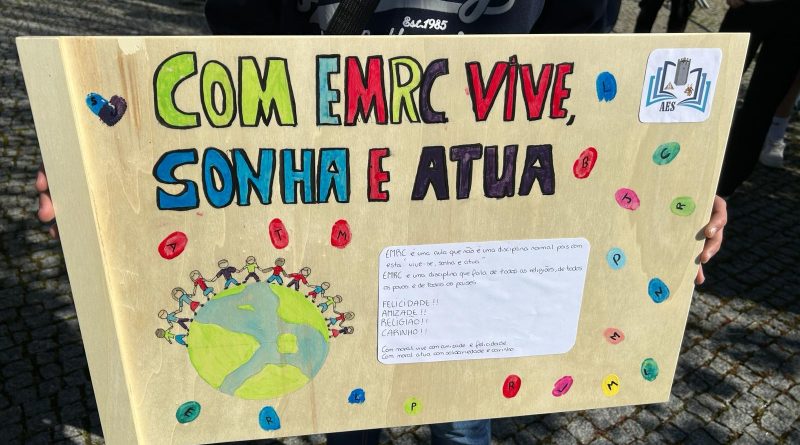 Est.1985
COM EMRC VIVE,
SONHA E ATUA
AES
S
L
C
B
J
R
A
T
M
P
N
M
M
E
R
L
P
R
J
L
EMRC é uma aula que não é uma disciplina normal pois com
esta vive-se, sonha e atua."
EMRC é uma disciplina que fala de todas as religiões, de todos
os povos e de todos os países.
FELICIDADE!!
AMIZADE!!
RELIGIÃO!!
CARINHO!!
Com moral vive com amizade e felicidade.
Com moral atua com solidariedade e carinho.